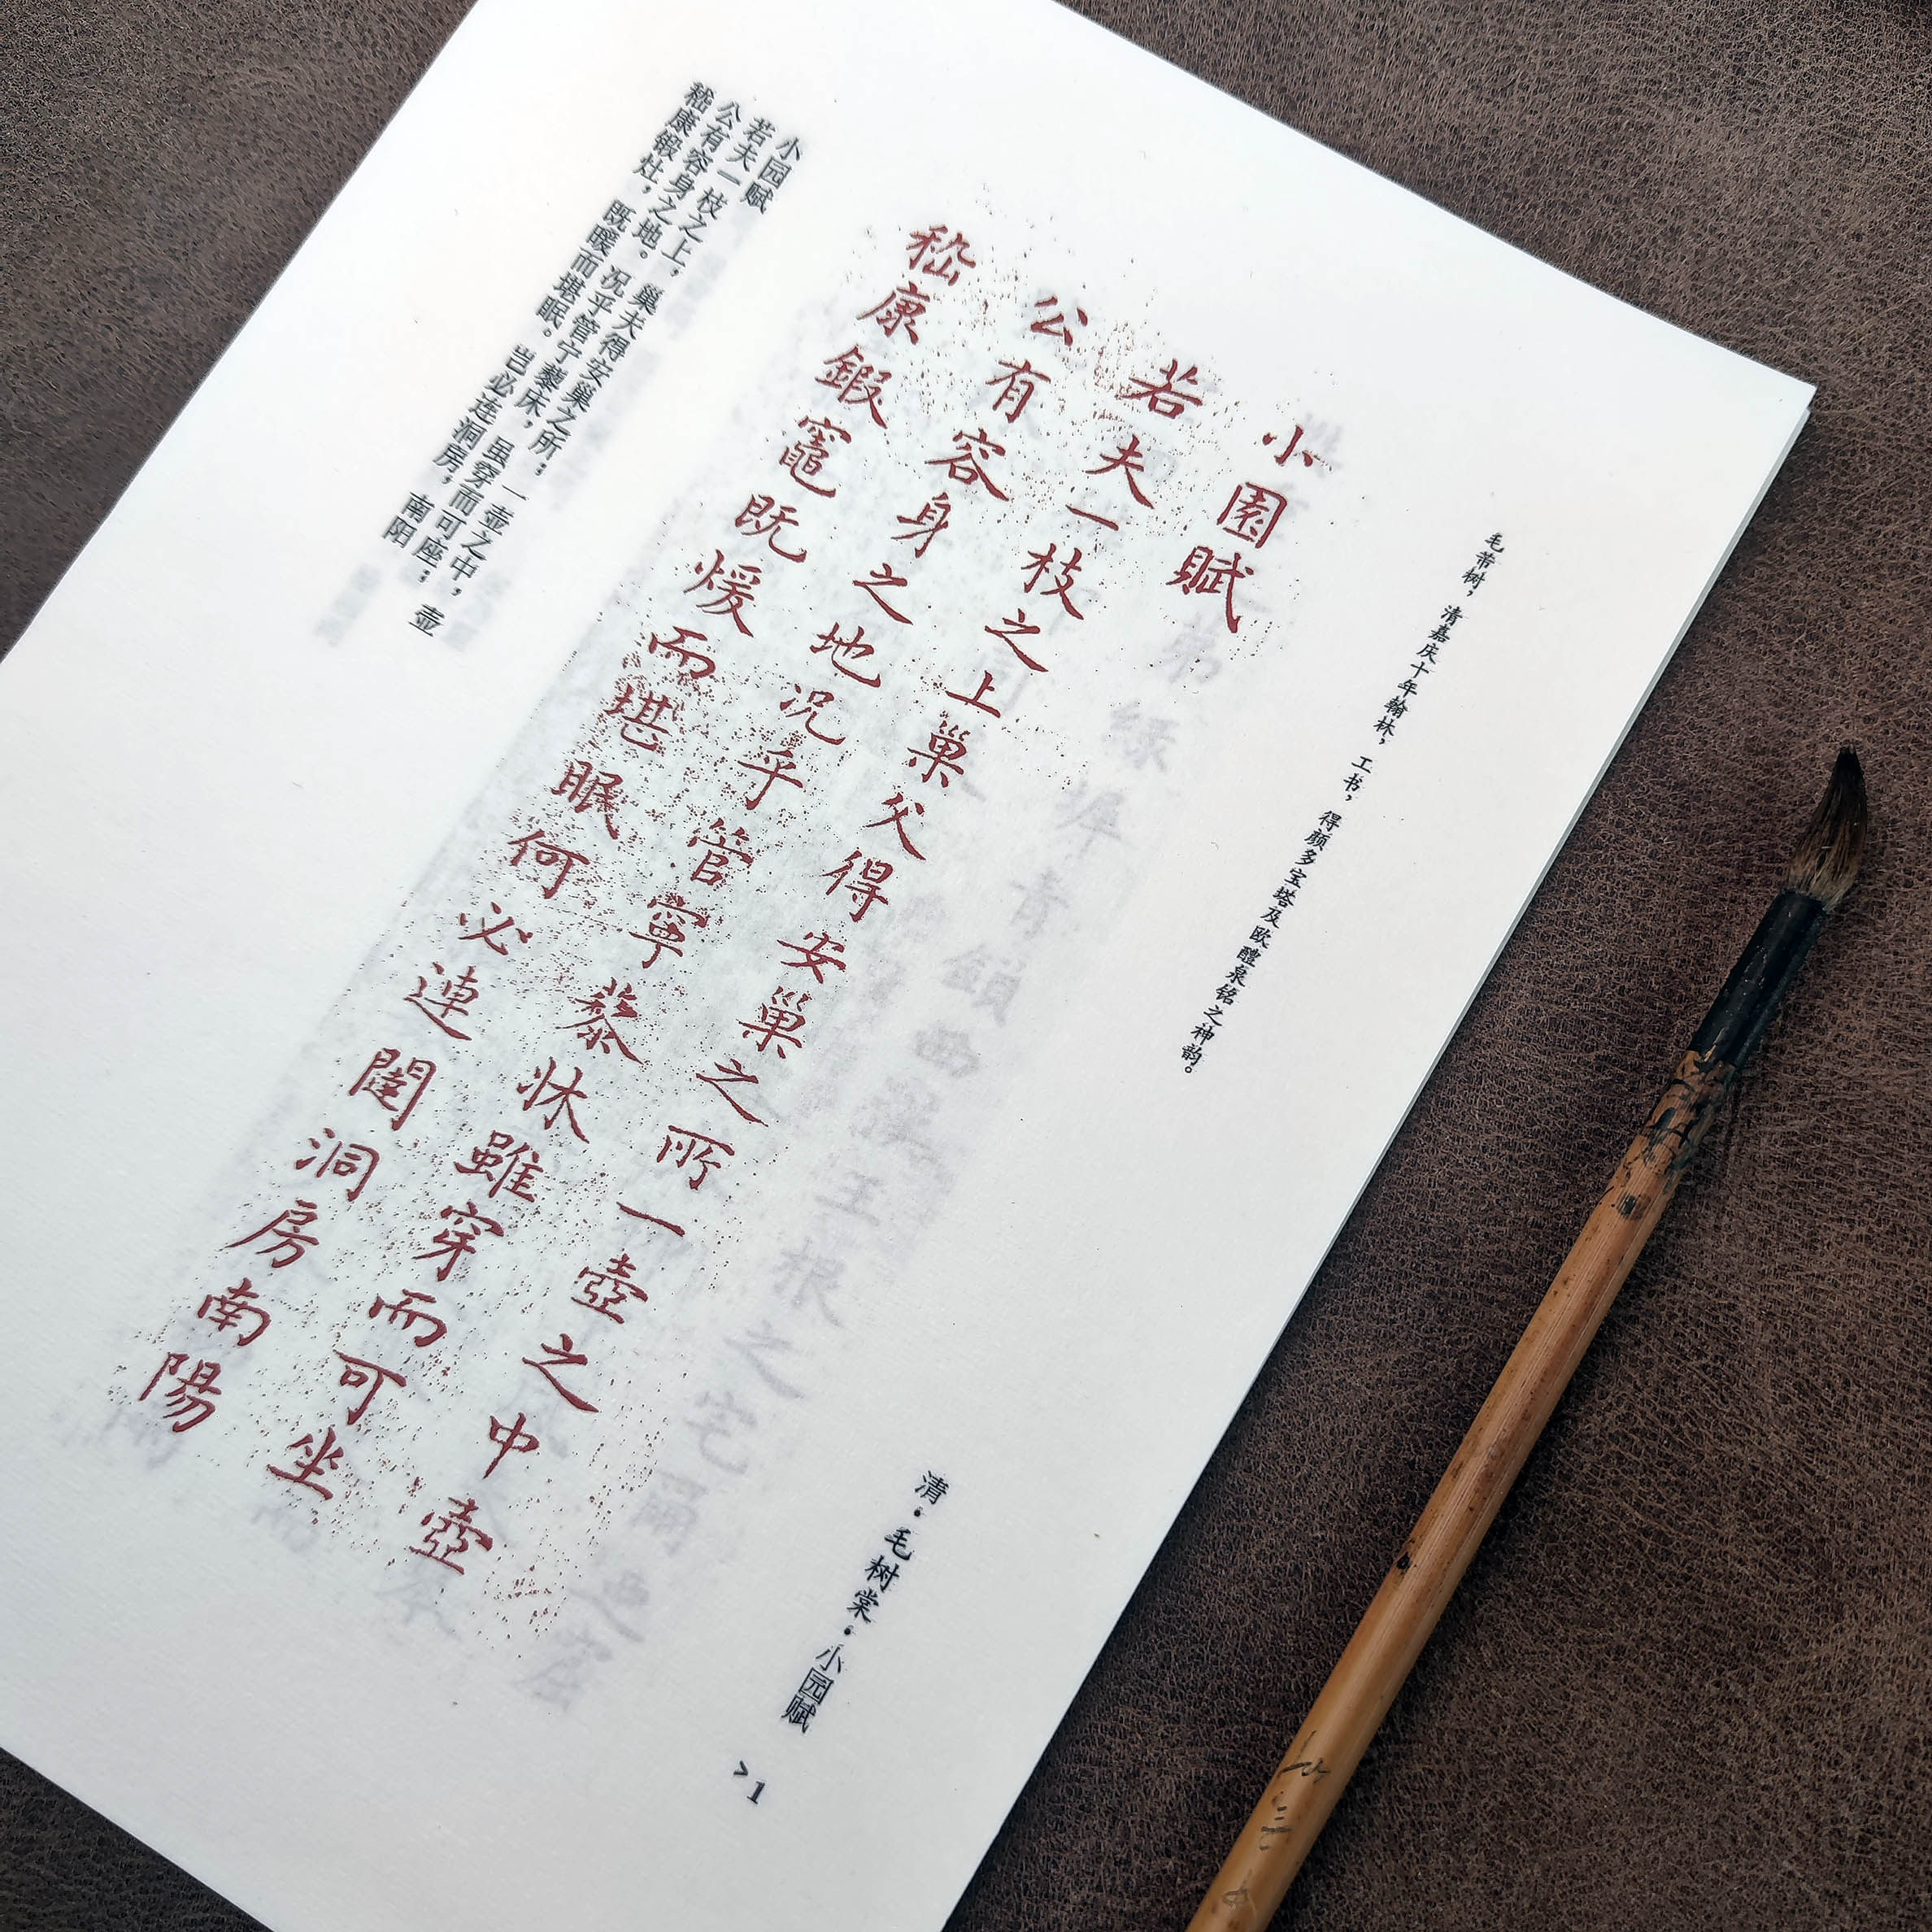 毛树，清嘉庆十年翰林，工书，得颜多宝塔及欧醴泉铭之神韵。
清·毛树棠·小园赋
>1
小園賦
若夫一枝之上巢父得安巢之所一壺之中壺
公有容身之地況乎管寧藜牀雖穿而可坐
嵇康鍛竈既煖而堪眠何必連闥洞房南陽
小园赋
若夫一枝之上，巢夫得安巢之所；一壶之中，壶
公有容身之地。况乎管宁藜床，虽穿而可座；
嵇康锻灶，既暖而堪眠。岂必连洞房，南阳